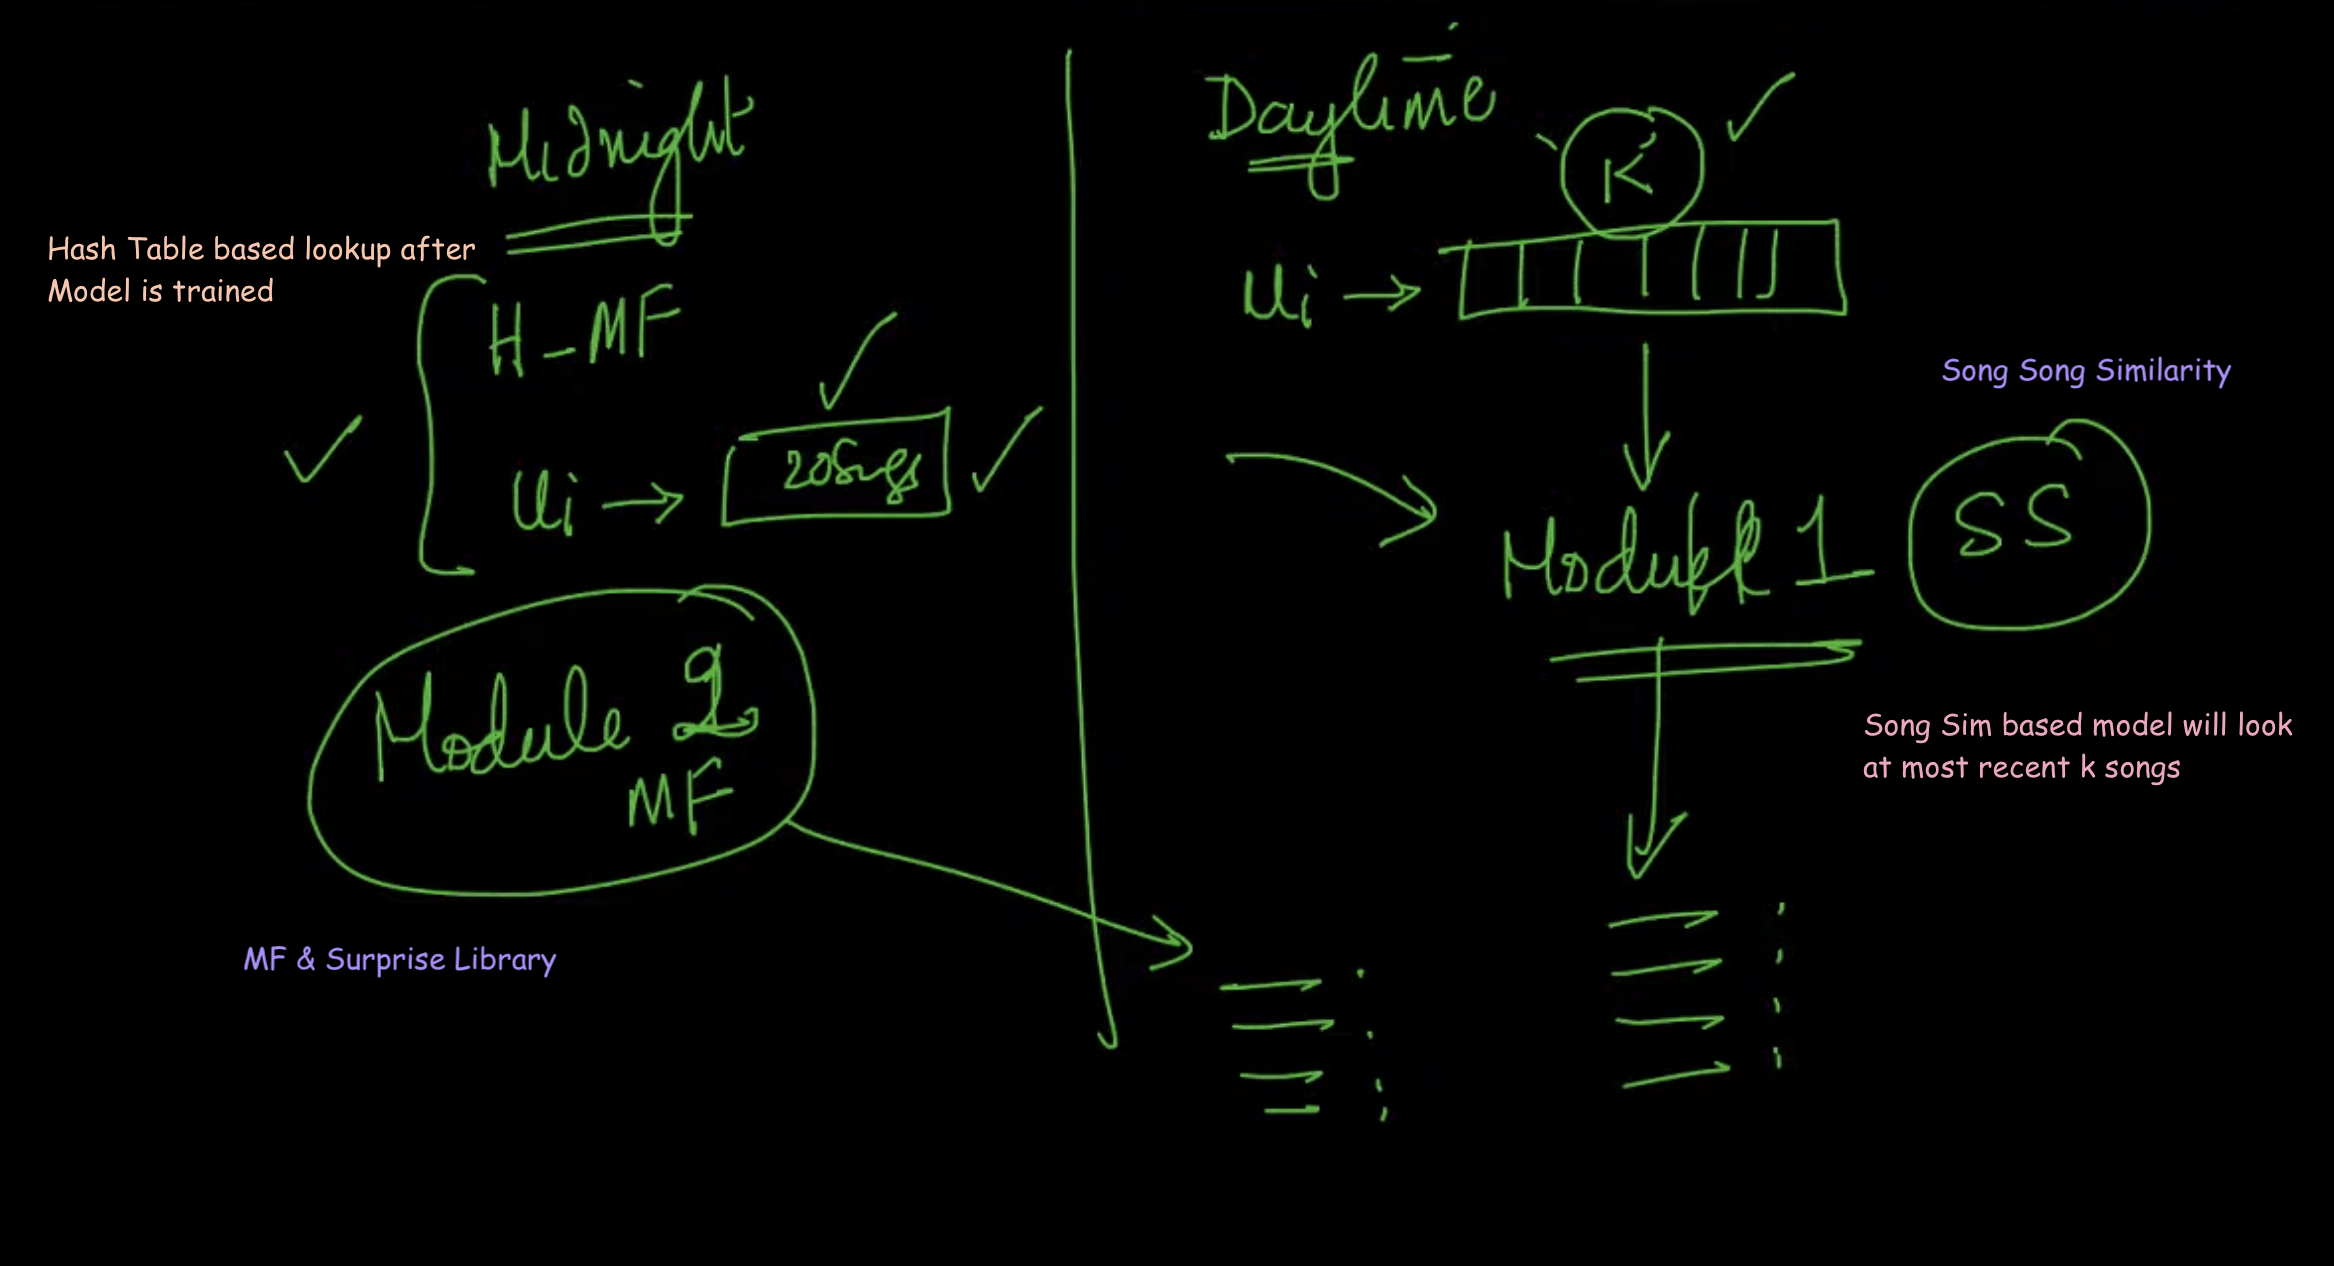 Midnight
Hash Table based lookup after
Model is trained
H-MF
Ui → 20Songs
Module 2
MF
MF & Surprise Library
Daytime
K
Ui →
Song Song Similarity
Module 1
SS
Song Sim based model will look
at most recent k songs